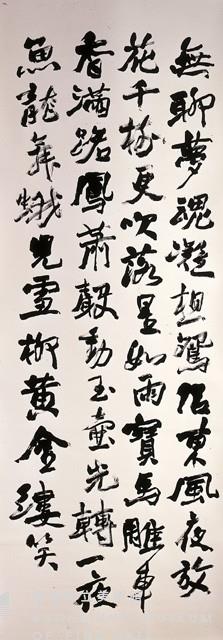 無聊夢魂凝想鴛侶東風夜放
花千樹更吹落星如雨寶馬雕車
香滿路鳳蕭聲動玉壺光轉一夜
魚龍舞蛾兒雪柳黃金縷笑